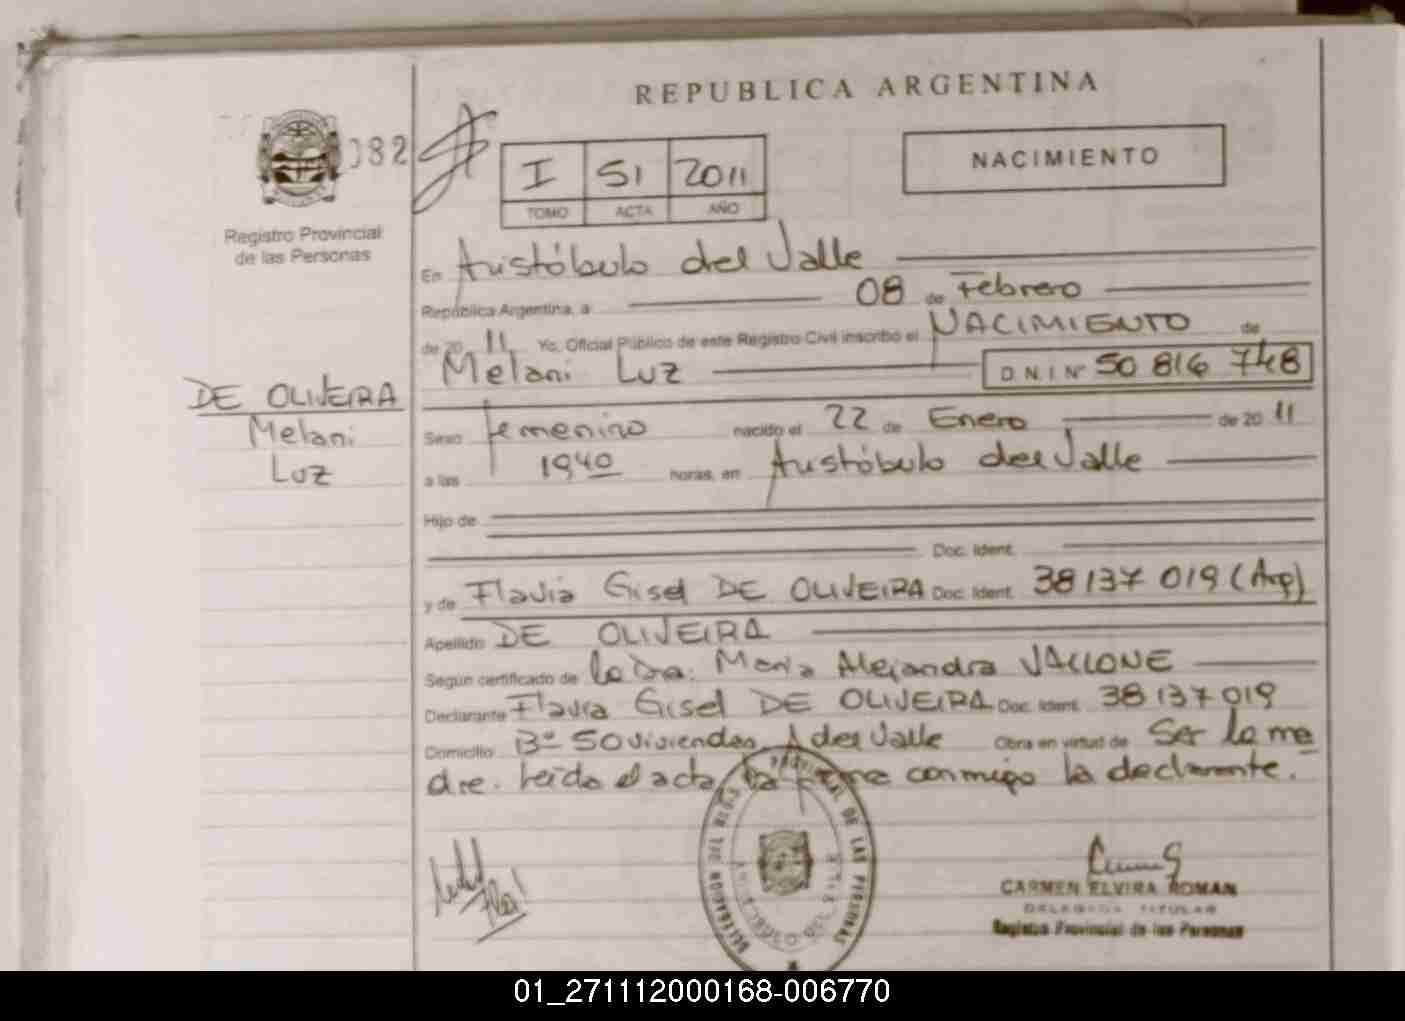 REPUBLICA ARGENTINA
082
I SI 2011
TOMO ACTA AÑO
NACIMIENTO
Registro Provincial
de las Personas
En Aristóbulo del Valle
República Argentina, a 08 de Febrero
de 20 11 Yo, Oficial Público de este Registro Civil inscribo el NACIMIENTO de
Melani Luz D.N.I Nº 50 816 748
DE OLIVEIRA
Melani
Luz
Sexo femenino nacido el 22 de Enero de 20 11
a las 1940 horas, en Aristóbulo del Valle
Hijo de
Doc. Ident.
y de Flavia Gisel DE OLIVEIRA Doc. Ident. 38 137 019 (Arg)
Apellido DE OLIVEIRA
Según certificado de la Dra. Maria Alejandra VALLONE
Declarante Flavia Gisel DE OLIVEIRA Doc. Ident. 38 137 019
Domicilio Bº 50 viviendas A del Valle Obra en virtud de Ser la ma
dre. Leída el acta la firma conmigo la declarante.
PROVINCIAL DE LAS PERSONAS
DELEGACION
CARMEN ELVIRA ROMAN
DELEGADA TITULAR
Registro Provincial de las Personas
01_271112000168-006770